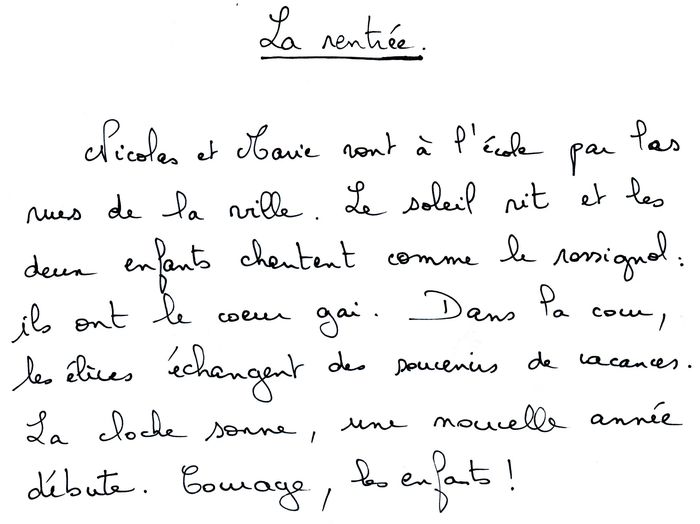 La rentrée.
Nicolas et Marie vont à l'école par las
rues de la ville. Le soleil rit et les
deux enfants chantent comme le rossignol :
ils ont le coeur gai. Dans la cour,
les élèves échangent des souvenirs de vacances.
La cloche sonne, une nouvelle année
débute. Courage, les enfants !